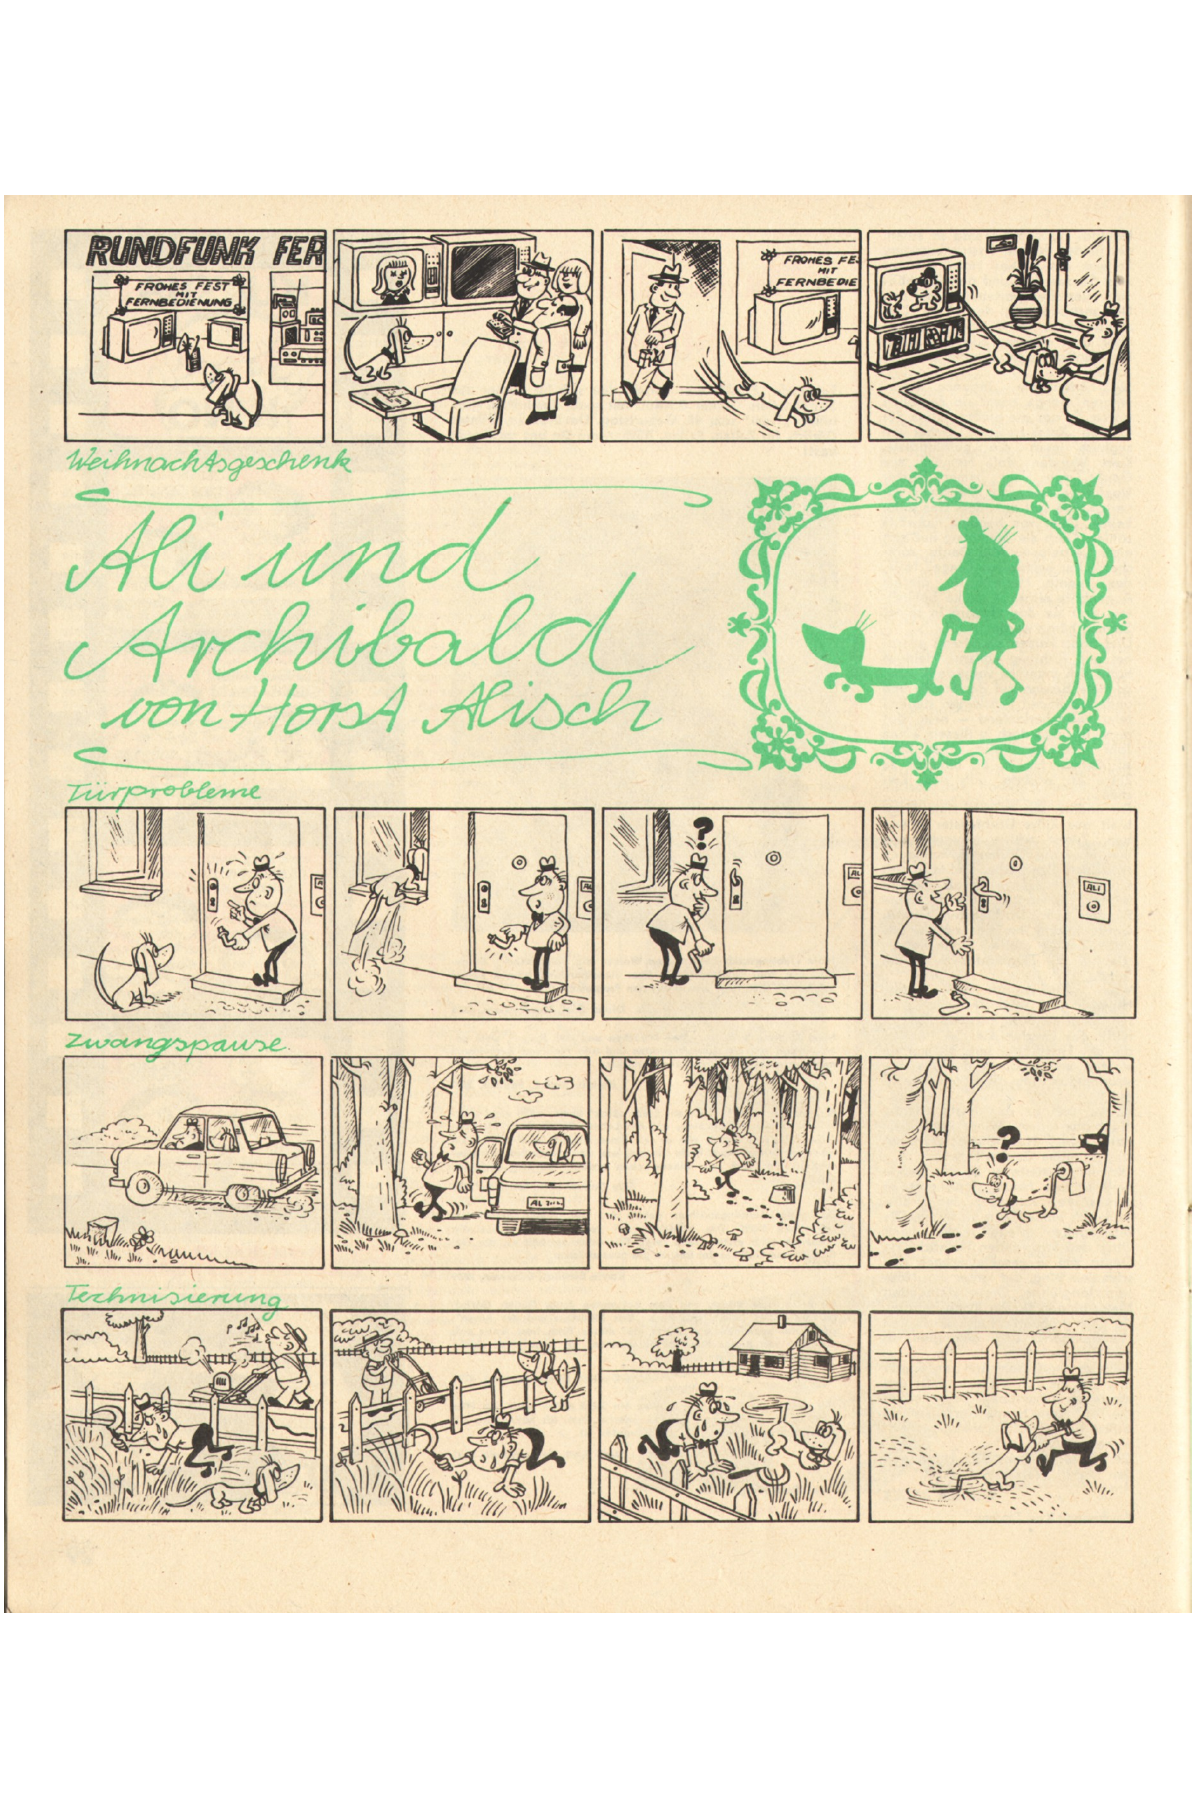 RUNDFUNK FER
FROHES FEST
MIT
FERNBEDIENUNG
FROHES FE
MIT
FERNBEDIE
Weihnachtsgeschenk
Ali und
Archibald
von Horst Alisch
Türprobleme
?
ALI
Zwangspause.
?
Technisierung